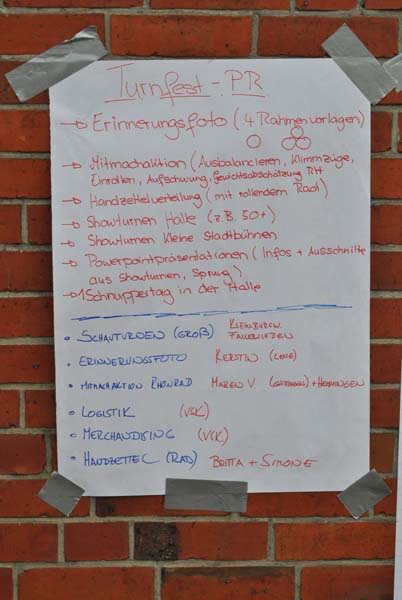 Turnfest - PR
→ Erinnerungsfoto (4 Rahmenvorlagen)
→ Mitmachaktion (Ausbalancieren, Klimmzüge,
Einrollen, Aufschwung, Gewichtsabschätzung
→ Handzettelverteilung (mit rollendem Rad)
→ Showturnen Halle (z.B. 50+)
→ Showturnen kleine Stadtbühnen
→ Powerpointpräsentationen (Infos + Ausschnitte
aus Showturnen, Sprung)
→ 1 Schnuppertag in der Halle
• SCHAUTURNEN (GROß) KLEINBURGW.
FALLERSLEBEN
• ERINNERUNGSFOTO KERSTIN
• MITMACHAKTION RHÖNRAD MAREN V
• LOGISTIK (VSK)
• MERCHANDISING (VSK)
• HANDZETTEL (RAD) BRITTA + SIMONE